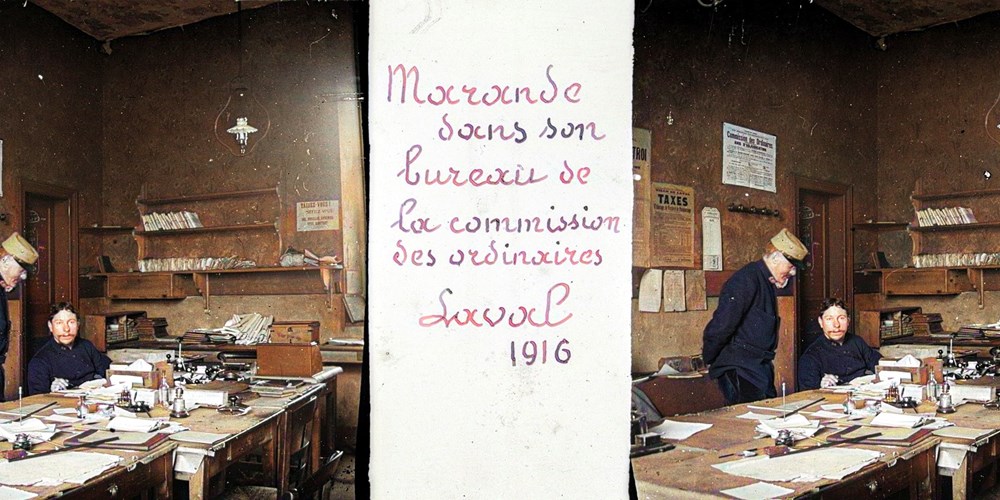 TAISEZ-VOUS !
Marande
dans son
bureau de
la commission
des ordinaires
Laval
1916
Commission des Ordinaires
TAXES